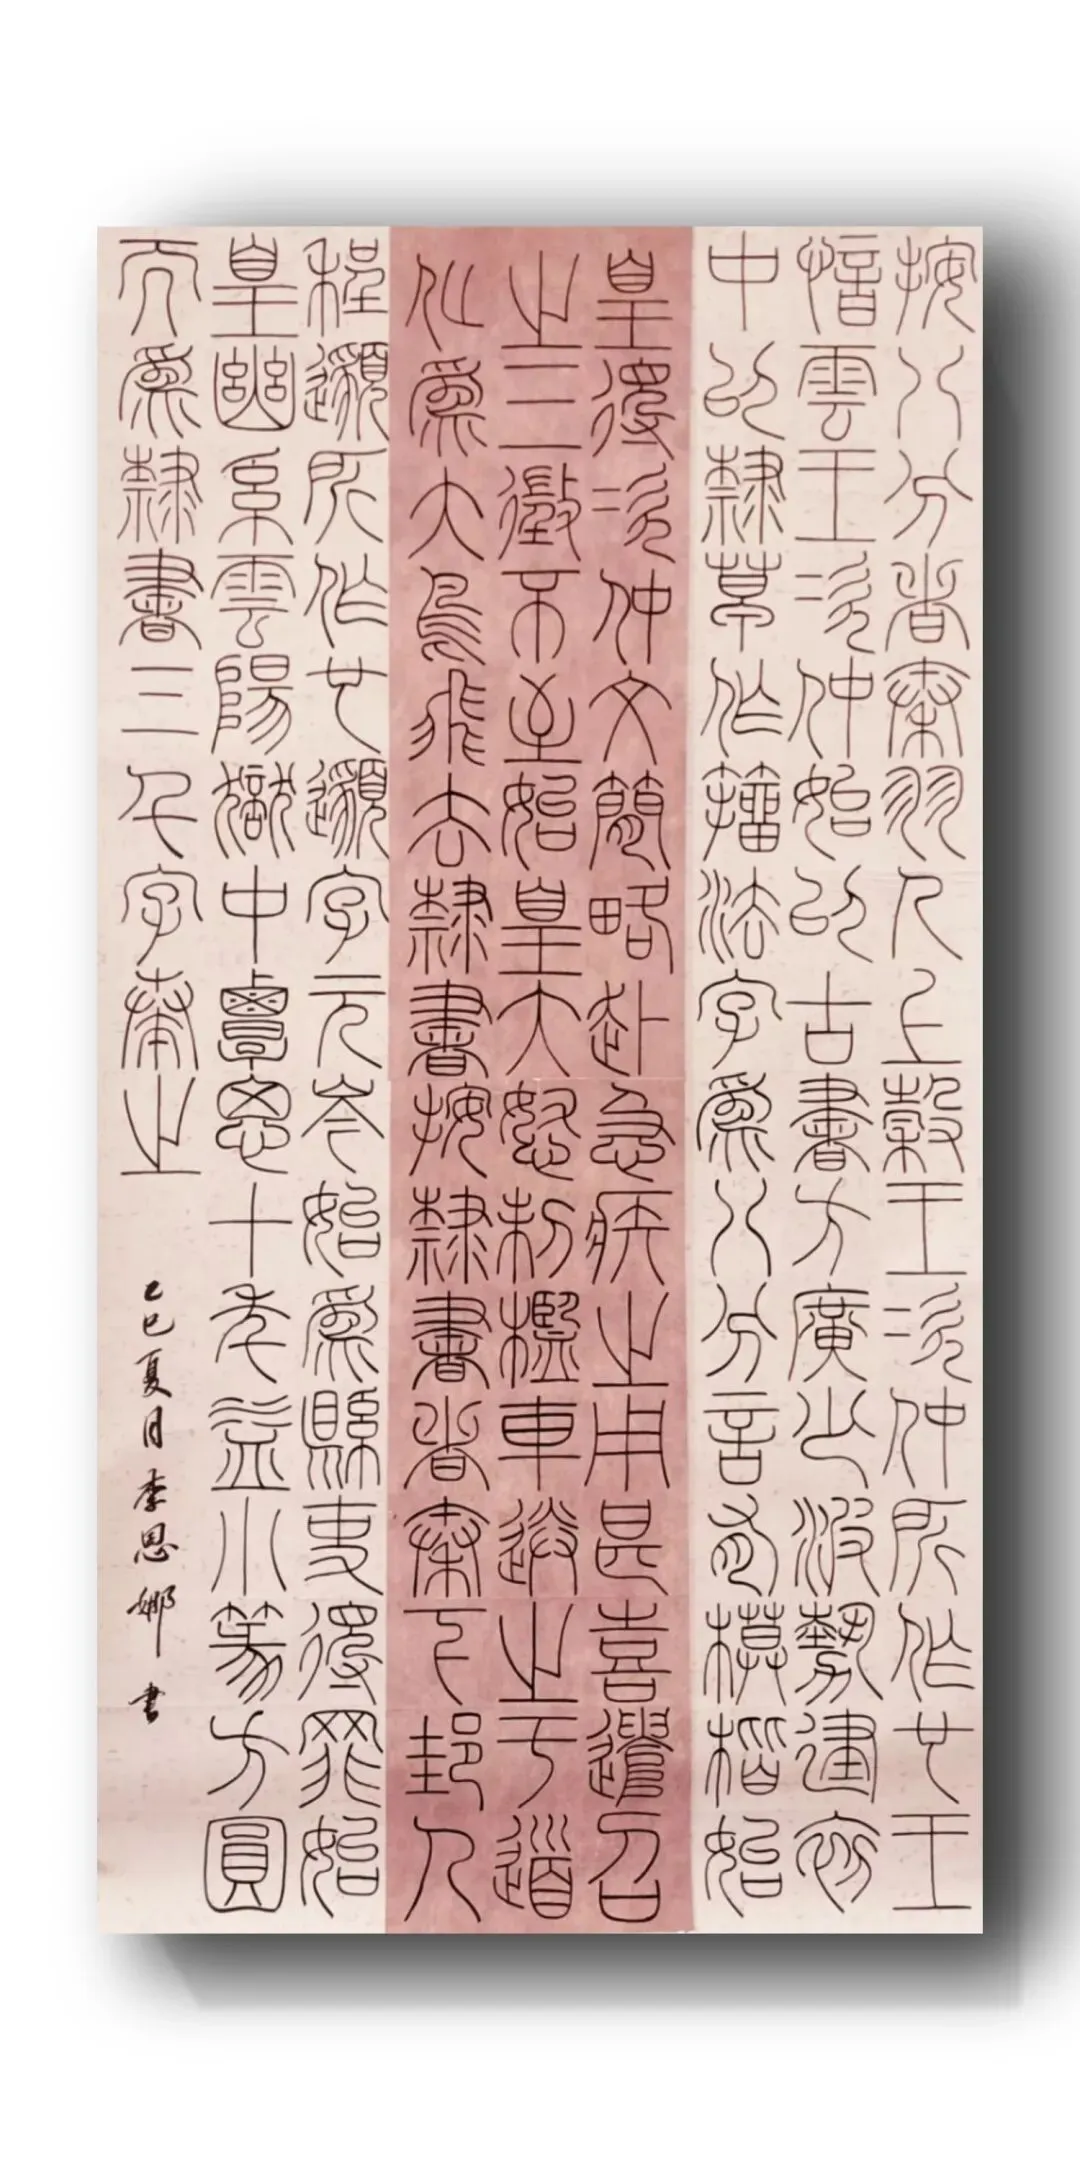 按八分者秦羽人上穀王次仲所作也王
愔雲王次仲始以古書方廣少波勢建初
中以隸草作法字為八分言有模楷始
皇得次仲文簡略赴急疾之用甚喜遣召
之三徵不至始皇大怒制檻車送之于道
化為大鳥飛去隸書按隸書者秦下邽人
程邈所作也邈字元岑始為縣吏得罪始
皇幽系雲陽獄中覃思十年益小篆方圓
而為隸書三千字奏之
乙巳夏月李恩娜書